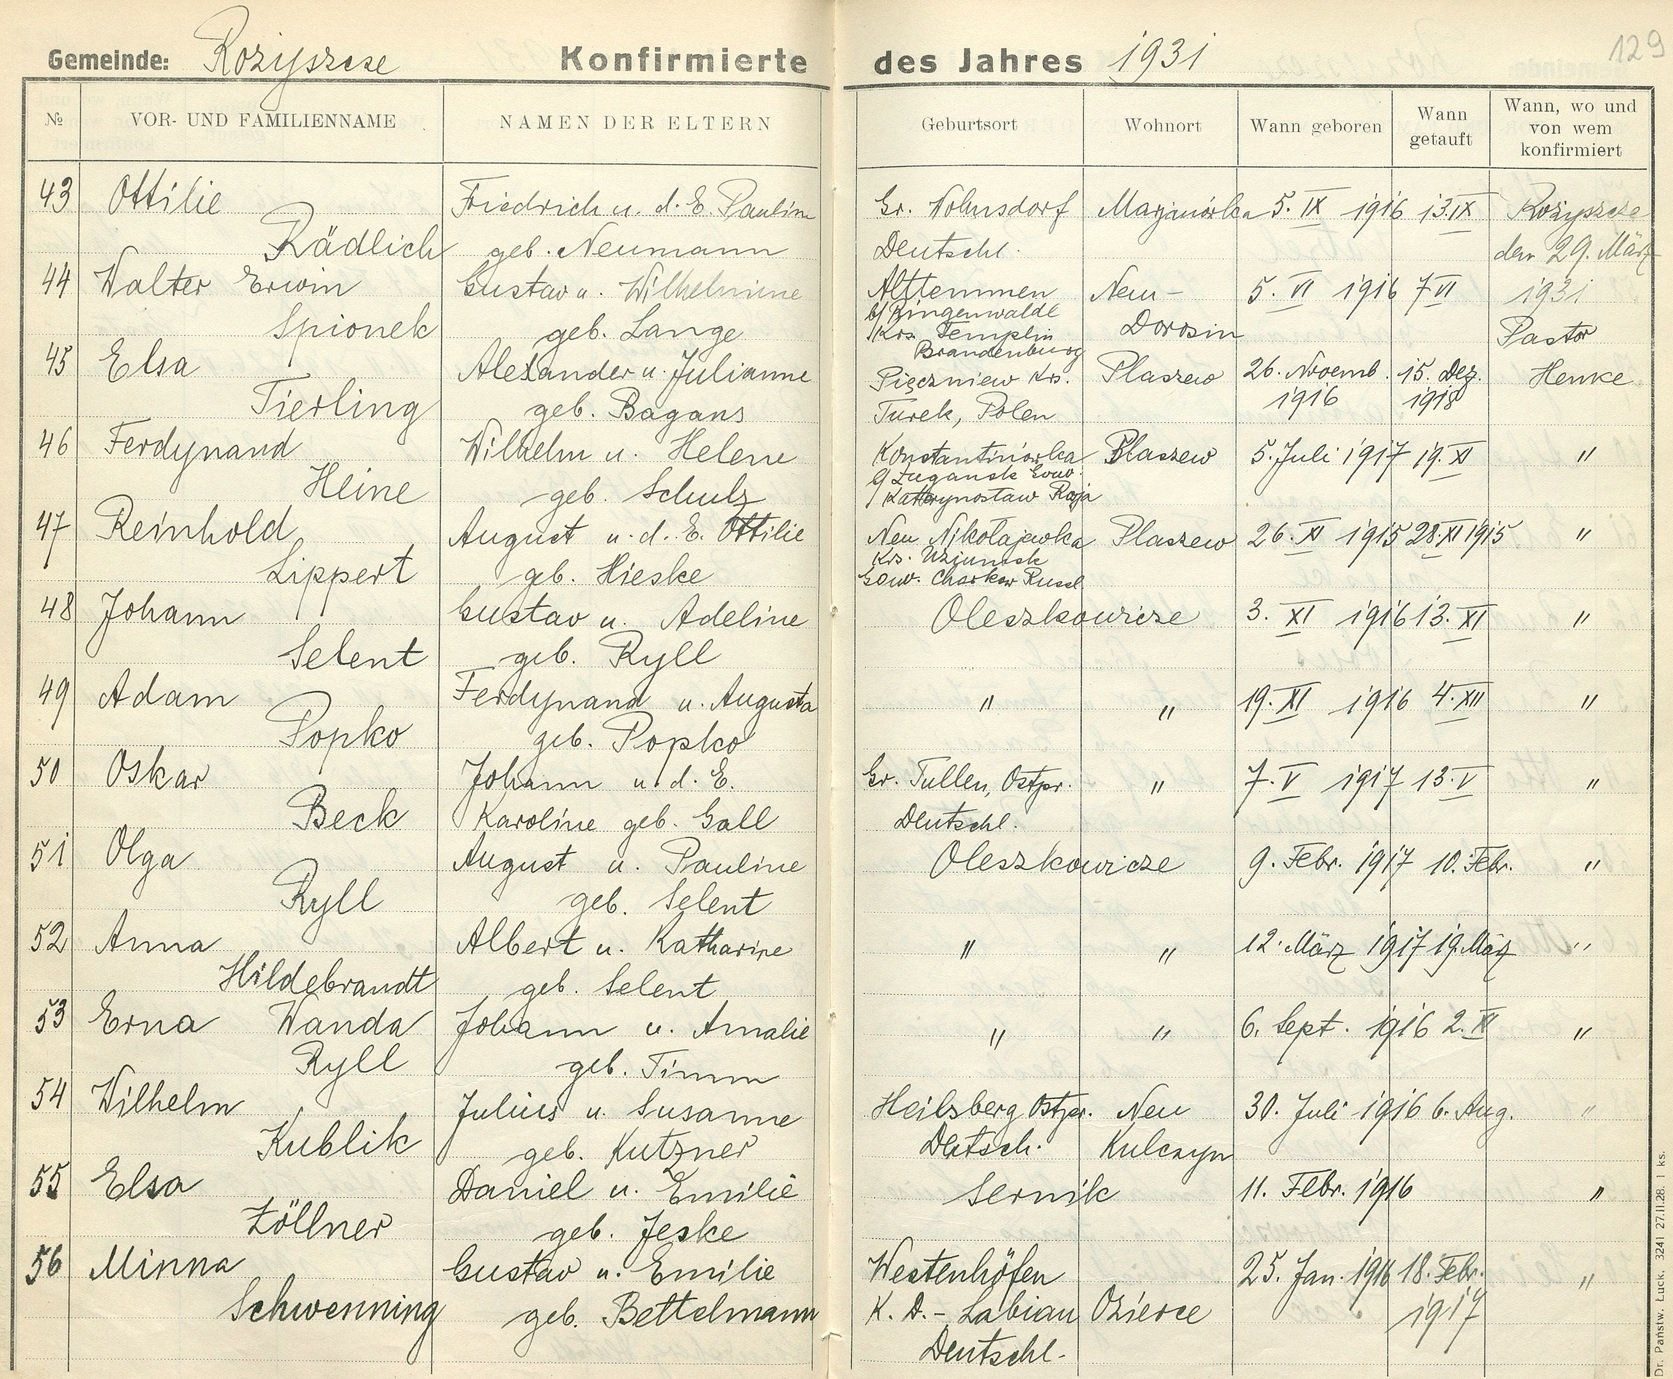 Gemeinde: Rożyszcze Konfirmierte des Jahres 1931 129
№ VOR- UND FAMILIENNAME NAMEN DER ELTERN Geburtsort Wohnort Wann geboren Wann getauft Wann, wo und von wem konfirmiert
43 Ottilie Friedrich u. d. E. Pauline Gr. Wohnsdorf Marjanówka 5. IX 1916 13. IX Rożyszcze
Rädlich geb. Neumann Deutschl. den 29. März
44 Walter Erwin Gustav u. Wilhelmine Alttemmen Neu- 5. VI 1916 7 VI 1931
b/ Ringenwalde
Spionek geb. Lange Krs. Templin Dorosin Pastor
Brandenburg
45 Elsa Alexander u. Julianne Pięczniew Krs. Plaszew 26. Novemb. 15. Dez. Henke
Tierling geb. Bagans Turek, Polen 1916 1918
46 Ferdynand Wilhelm u. Helene Konstantinówka Plaszew 5. Juli 1917 19. XI "
Heine geb. Schulz Ługansk Gouv.
47 Reinhold August u. d. E. Ottilie Neu Nikolajewka Plaszew 26. XI 1915 28. XI 1915 "
Lippert geb. Hieske Gouv. Charkow Russl
48 Johann Gustav u. Adeline Oleszkowicze 3. XI 1916 13. XI "
Selent geb. Ryll
49 Adam Ferdynand u. Augusta " " 19. XI 1916 4. XII "
Popko geb. Popko
50 Oskar Johann u. d. E. Gr. Tullen, Ostpr. " 7. V 1917 13. V "
Beck Karoline geb. Gall Deutschl.
51 Olga August u. Pauline Oleszkowicze 9. Febr. 1917 10. Febr. "
Ryll geb. Selent
52 Anna Albert u. Katharine " " 12. März 1917 19. März "
Hildebrandt geb. Selent
53 Erna Wanda Johann u. Amalie " " 6. Sept. 1916 2. XI "
Ryll geb. Timm
54 Wilhelm Julius u. Susanne Heilsberg Ostpr. Neu 30. Juli 1916 6. Aug. "
Kublik geb. Kutzner Deutsch. Kulczyn
55 Elsa Daniel u. Emilie Sernik 11. Febr. 1916 "
Zöllner geb. Jeske
56 Minna Gustav u. Emilie Westenhöfen 25. Jan. 1916 18. Febr. "
Schwenning geb. Bettelmann K. D. - Labiau Ozierce 1917
Deutschl.
Dr. Państw. Łuck. 3241 27.II.28. 1 ks.